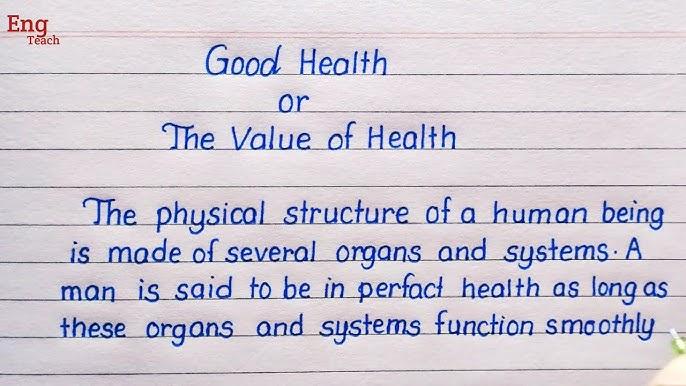 Eng
Teach
Good Health
or
The Value of Health
The physical structure of a human being
is made of several organs and systems. A
man is said to be in perfact health as long as
these organs and systems function smoothly